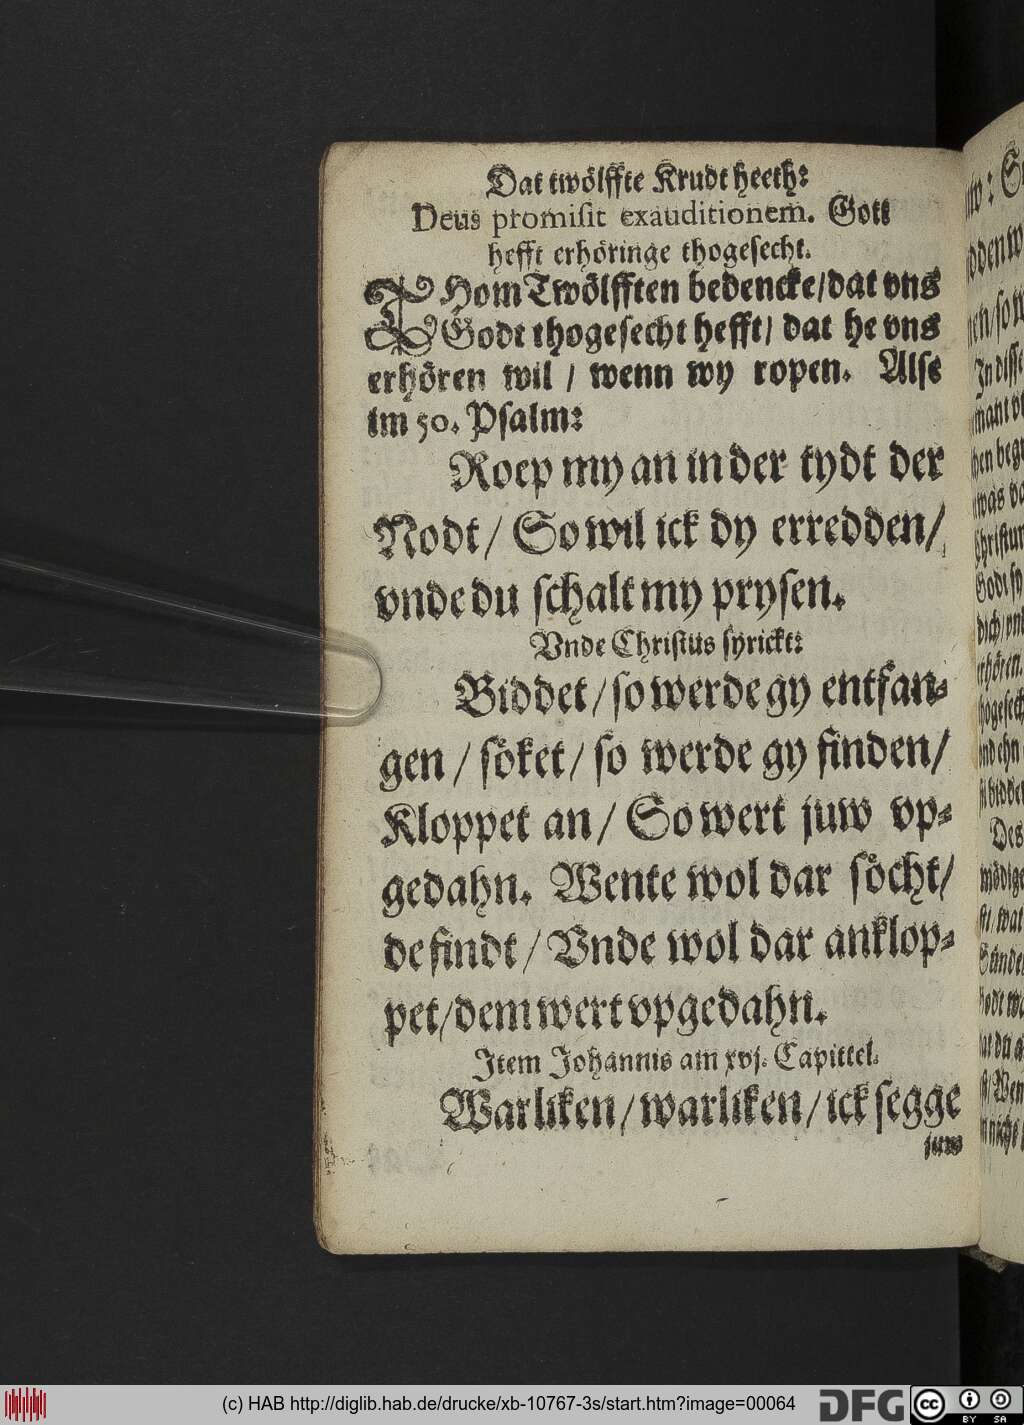 Dat twölffte Krudt heeth:
Deus promisit exauditionem. Gott
hefft erhöringe thogesecht.
THom Twölfften bedencke/dat vns
Godt thogesecht hefft/ dat he vns
erhören wil / wenn wy ropen. Alse
im 50. Psalm:
Roep my an in der tydt der
Nodt/ So wil ick dy erredden/
vnde du schalt my prysen.
Vnde Christus syrickt:
Biddet/so werde gy entfan-
gen / söket/ so werde gy finden/
Kloppet an/ So wert juw vp-
gedahn. Wente wol dar söcht/
de findt/ Vnde wol dar anklop-
pet/dem wert vpgedahn.
Item Johannis am xvj. Capittel.
Warliken/warliken/ick segge
juw
(c) HAB http://diglib.hab.de/drucke/xb-10767-3s/start.htm?image=00064
DFG
cc
BY SA